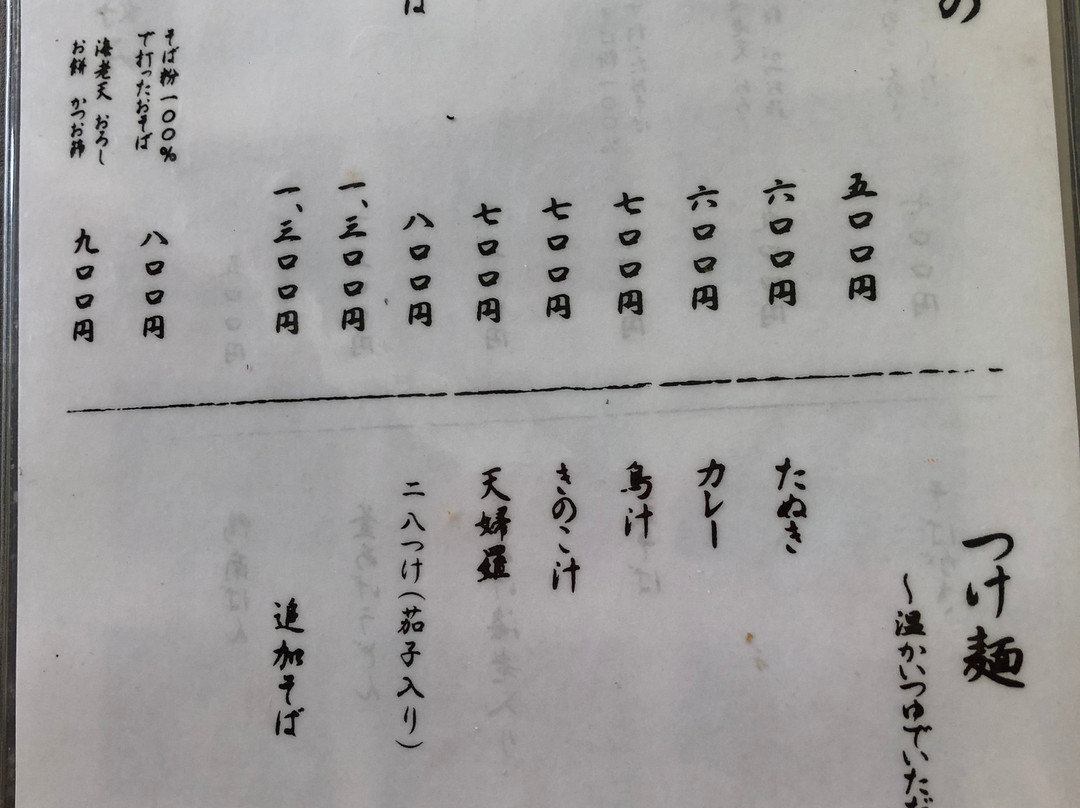 の
五〇〇円
六〇〇円
六〇〇円
七〇〇円
七〇〇円
七〇〇円
八〇〇円
一、三〇〇円
一、三〇〇円
は
そば粉一〇〇%
で打ったおそば
八〇〇円
海老天 おろし
お餅 かつお節
九〇〇円
つけ麺
～温かいつゆでいただ
たぬき
カレー
鳥汁
きのこ汁
天婦羅
二八つけ(茄子入り)
追加そば